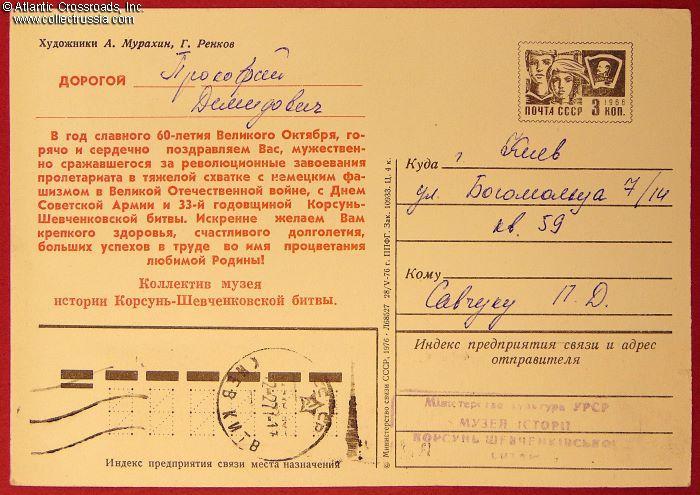 © Atlantic Crossroads, Inc.
www.collectrussia.com
Художники А. Мурахин, Г. Ренков
ДОРОГОЙ Прокофий
Демидович
В год славного 60-летия Великого Октября, го-
рячо и сердечно поздравляем Вас, мужествен-
но сражавшегося за революционные завоевания
пролетариата в тяжелой схватке с немецким фа-
шизмом в Великой Отечественной войне, с Днем
Советской Армии и 33-й годовщиной Корсунь-
Шевченковской битвы. Искренне желаем Вам
крепкого здоровья, счастливого долголетия,
больших успехов в труде во имя процветания
любимой Родины!
Коллектив музея
истории Корсунь-Шевченковской битвы.
КИЕВ КИЇВ
СССР
Индекс предприятия связи места назначения
© Министерство связи СССР, 1976 · Л68527 28/V-76 г. ППФГ. Зак. 10933. Ц. 4 к.
1966
ПОЧТА СССР 3 КОП.
Куда г. Киев
ул. Богомольца 7/14
кв. 59
Кому
Савчуку П. Д.
Индекс предприятия связи и адрес
отправителя
Міністерство культури УРСР
МУЗЕЙ ІСТОРІЇ
КОРСУНЬ ШЕВЧЕНКІВСЬКОЇ